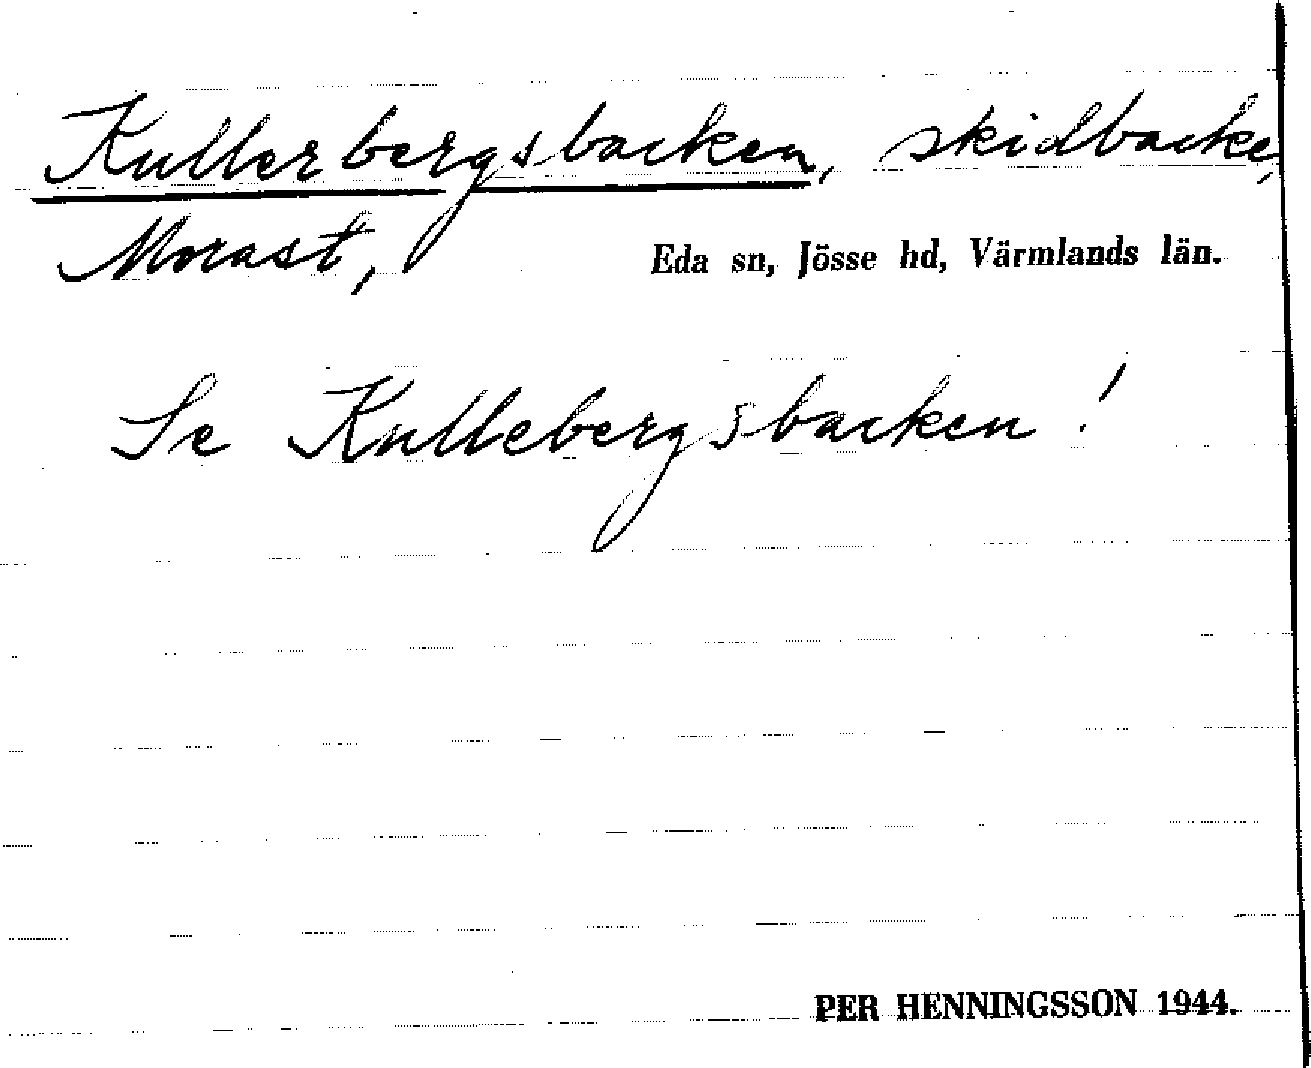 Kullerbergsbacken, skidbacke,
Morast, Eda sn, Jösse hd, Värmlands län.
Se Kullebergsbacken!
PER HENNINGSSON 1944.